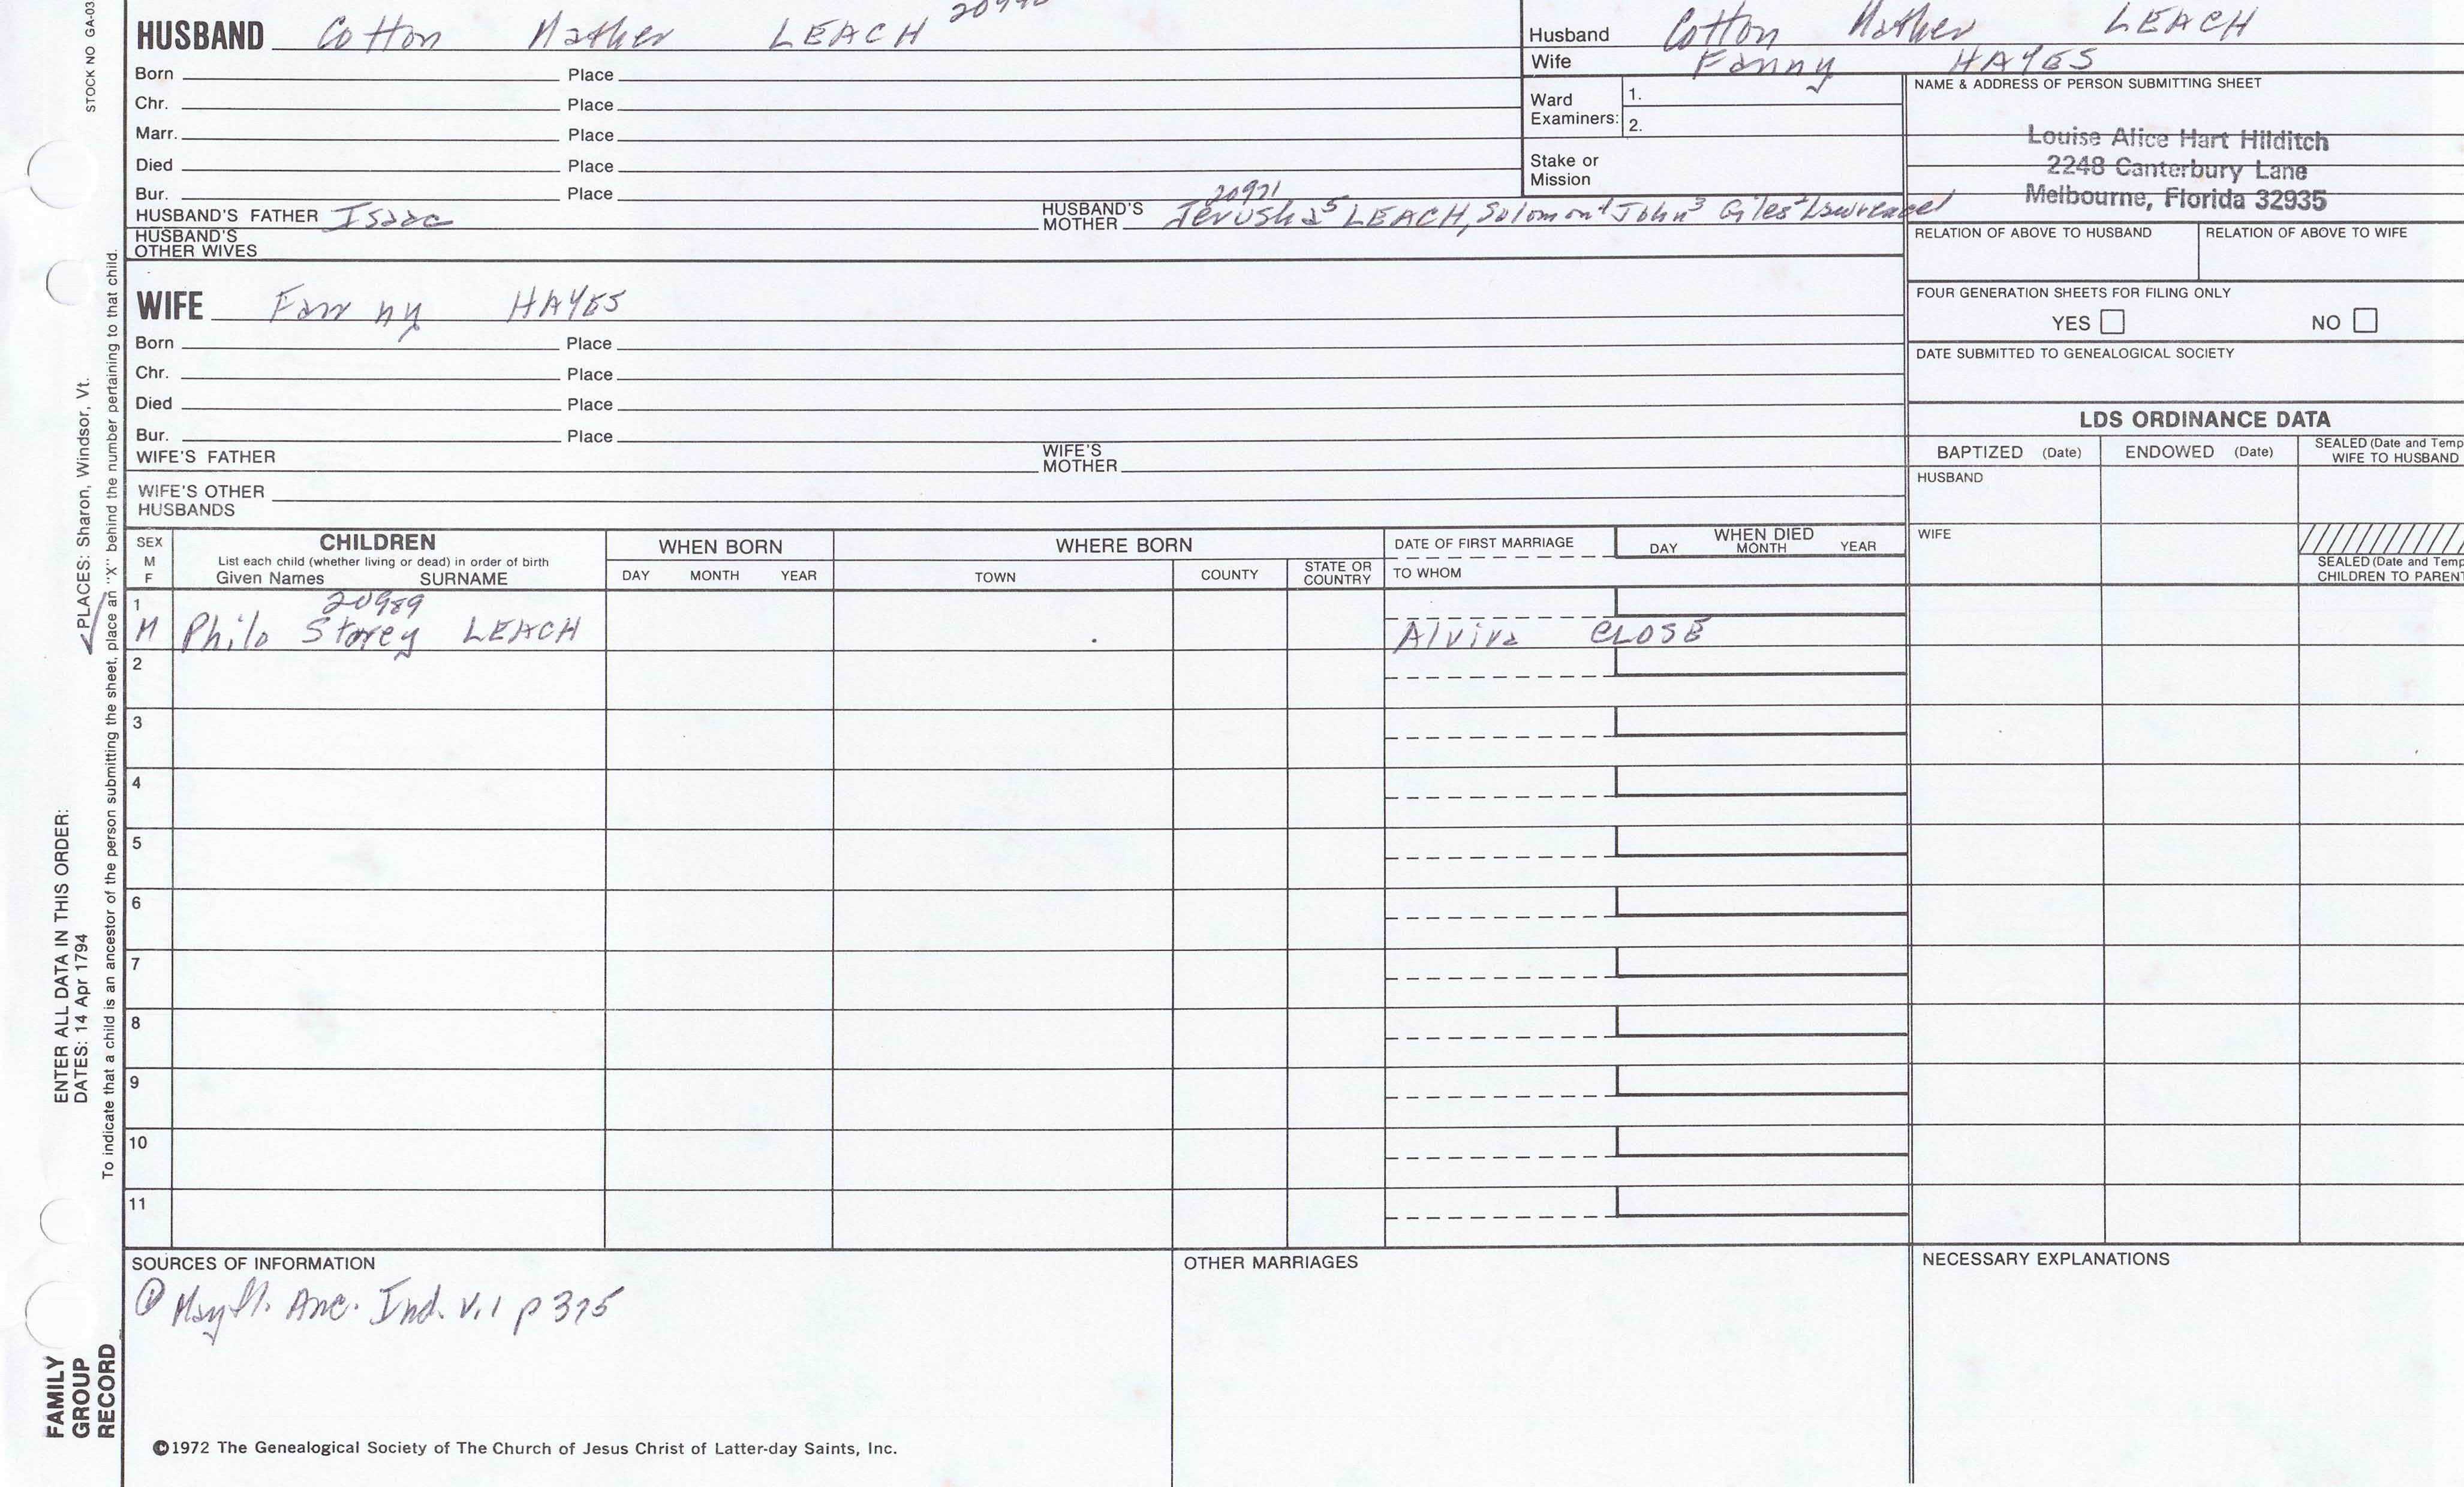 STOCK NO GA-03
HUSBAND Cotton Mather LEACH
Born Place
Chr. Place
Marr. Place
Died Place
Bur. Place
HUSBAND'S FATHER Isaac
HUSBAND'S MOTHER 20971 Jerusha5 LEACH, Solomon4 John3 Giles2 Lawrence1
HUSBAND'S OTHER WIVES
Husband Cotton Mather LEACH
Wife Fanny HAYES
Ward Examiners: 1.
2.
Stake or Mission
NAME & ADDRESS OF PERSON SUBMITTING SHEET
Louise Alice Hart Hilditch
2248 Canterbury Lane
Melbourne, Florida 32935
RELATION OF ABOVE TO HUSBAND
RELATION OF ABOVE TO WIFE
FOUR GENERATION SHEETS FOR FILING ONLY
YES NO
DATE SUBMITTED TO GENEALOGICAL SOCIETY
WIFE Fanny HAYES
Born Place
Chr. Place
Died Place
Bur. Place
WIFE'S FATHER
WIFE'S MOTHER
WIFE'S OTHER HUSBANDS
LDS ORDINANCE DATA
BAPTIZED (Date) ENDOWED (Date) SEALED (Date and Temp
WIFE TO HUSBAND
HUSBAND
WIFE
SEALED (Date and Temp
CHILDREN TO PARENT
SEX
M
F
CHILDREN
List each child (whether living or dead) in order of birth
Given Names SURNAME
WHEN BORN
DAY MONTH YEAR
WHERE BORN
TOWN COUNTY STATE OR COUNTRY
DATE OF FIRST MARRIAGE
TO WHOM
WHEN DIED
DAY MONTH YEAR
1 20989
M Philo Storey LEACH Alvira CLOSE
2
3
4
5
6
7
8
9
10
11
SOURCES OF INFORMATION
① Mayfl. Anc. Ind. v.1 p 375
OTHER MARRIAGES
NECESSARY EXPLANATIONS
©1972 The Genealogical Society of The Church of Jesus Christ of Latter-day Saints, Inc.
ENTER ALL DATA IN THIS ORDER:
DATES: 14 Apr 1794
PLACES: Sharon, Windsor, Vt.
To indicate that a child is an ancestor of the person submitting the sheet, place an "X" behind the number pertaining to that child.
FAMILY
GROUP
RECORD